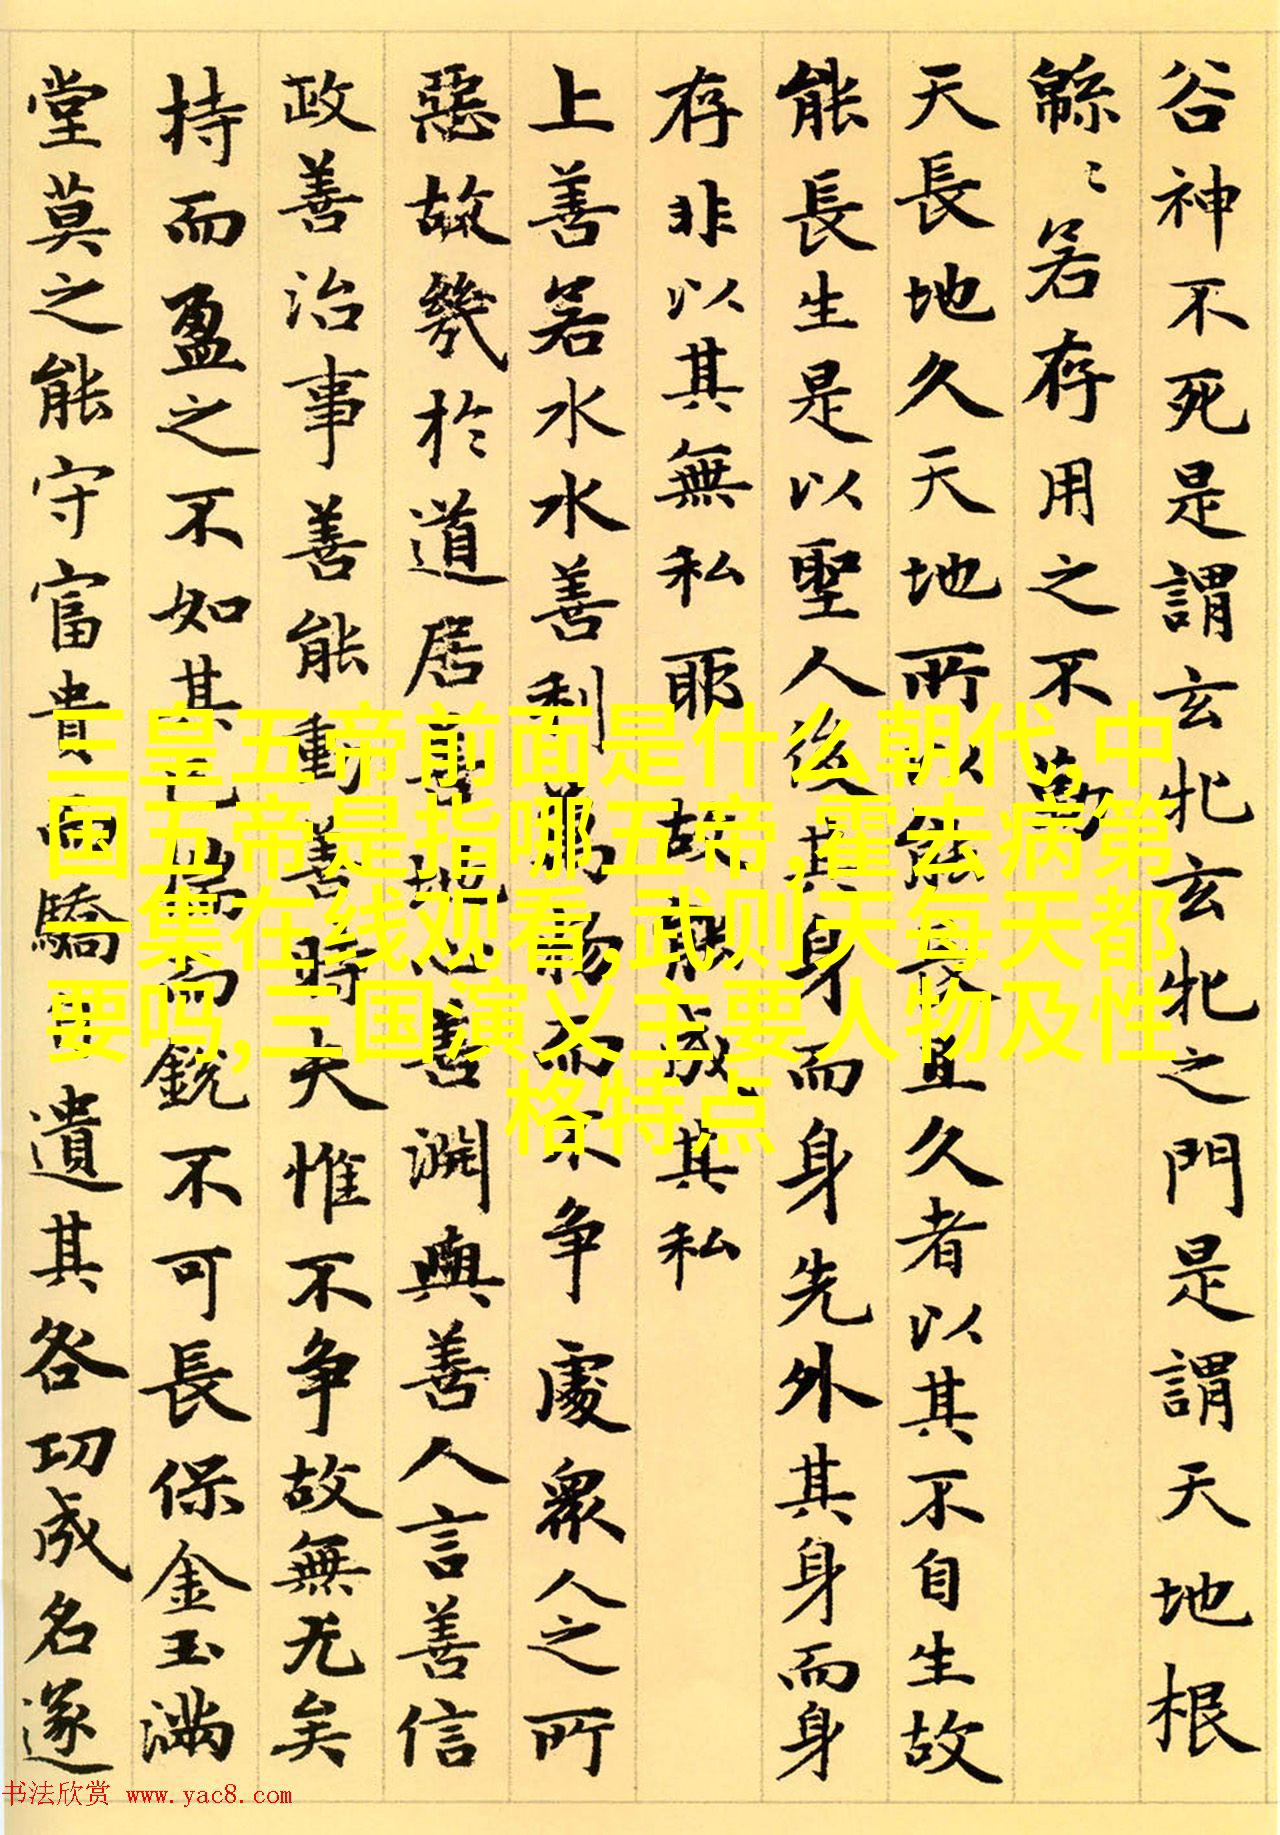 谷神不死是謂玄牝玄牝之門是謂天地根
緜〻若存用之不勤
天長地久天地所以能長且久者以其不自生故
能長生是以聖人後其身而身先外其身而身
存非以其無私耶故能成其私
上善若水水善利萬物而不争處衆人之所
惡故幾於道居善地心善淵與善人言善信
政善治事善能動善時夫惟不争故無尤矣
持而盈之不如其已揣而銳不可長保金玉滿
堂莫之能守富貴而驕自遺其咎功成名遂
三皇五帝前面是什么朝代,中
国五帝是指哪五帝,霍去病第
一集在线观看,武则天每天都
要吗,三国演义主要人物及性
格特点
书法欣赏 www.yac8.com